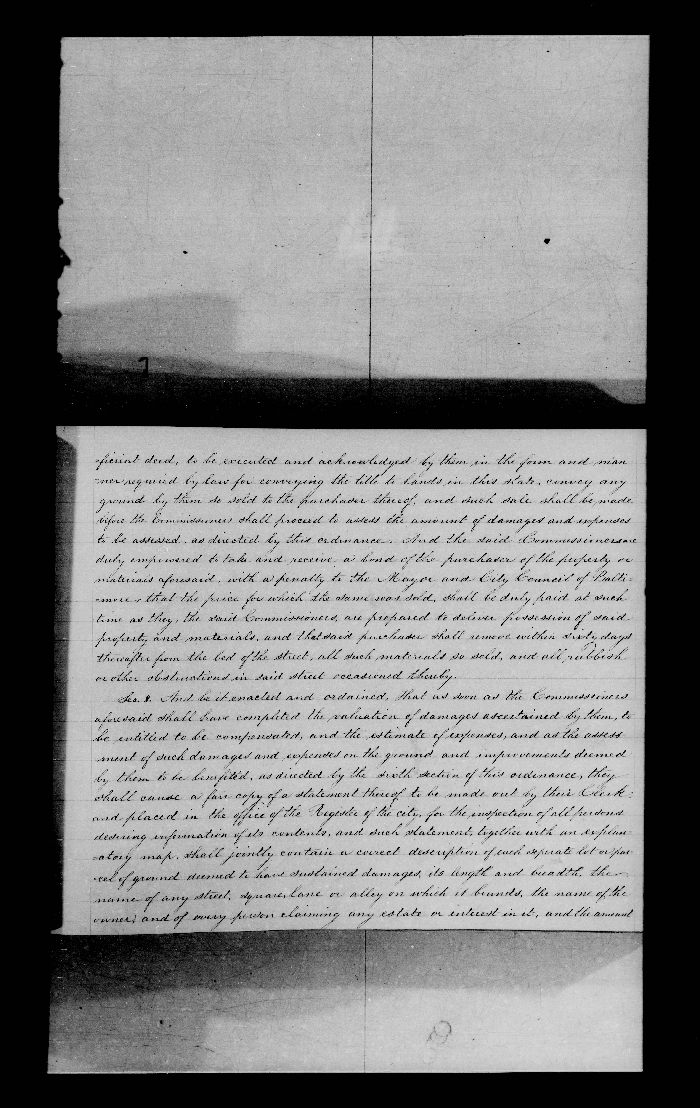 -ficient deed, to be executed and acknowledged by them in the form and man
-ner required by law for conveying the title to lands in this state, convey any
ground by them so sold to the purchaser thereof, and such sale shall be made
before the Commissioners shall proceed to assess the amount of damages and expenses
to be assessed, as directed by this ordinance. And the said Commissioners are
duly empowered to take and receive a bond of the purchaser of the property or
materials aforesaid, with a penalty to the Mayor and City Council of Balti-
-more, that the price for which the same was sold, shall be duly paid at such
time as they, the said Commissioners, are prepared to deliver possession of said
property and materials, and that said purchaser shall remove within sixty days
thereafter from the bed of the street, all such materials so sold, and all rubbish
or other obstructions in said street occasioned thereby.
Sec. 8. And be it enacted and ordained, that as soon as the Commissioners
aforesaid shall have completed the valuation of damages ascertained by them, to
be entitled to be compensated, and the estimate of expenses, and as the assess
ment of such damages and expenses on the ground and improvements deemed
by them to be benefited, as directed by the sixth section of this ordinance, they
shall cause a fair copy of a statement thereof to be made out by their Clerk
and placed in the office of the Register of the city, for the inspection of all persons
desiring information of its contents, and such statement, together with an explan-
-atory map, shall jointly contain a correct description of each separate lot or par
cel of ground deemed to have sustained damages, its length and breadth, the
name of any street, square, lane or alley on which it bounds, the name of the
owner, and of every person claiming any estate or interest in it, and the amount